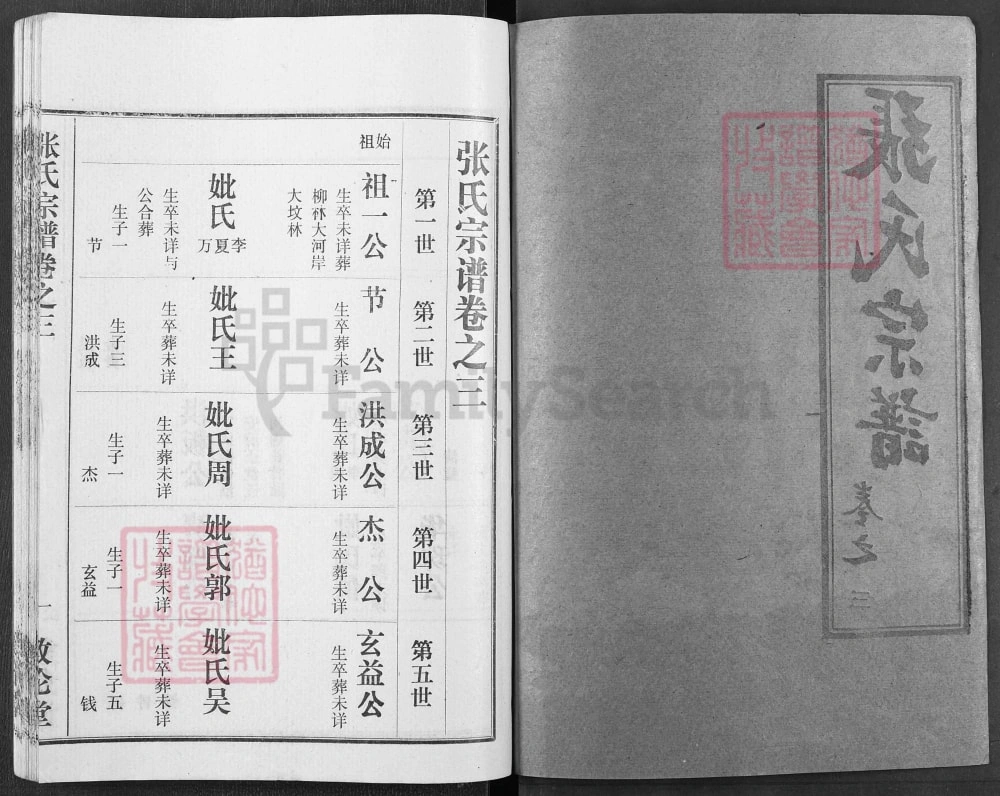 張氏宗譜
卷之三
猶他家
譜學會
FamilySearch
张氏宗谱卷之三
第一世
始祖
祖一公
生卒未详葬
柳林大河岸
大坟林
妣氏
李夏万
生卒未详与
公合葬
生子一
节
第二世
节公
生卒葬未详
妣氏王
生卒葬未详
生子三
洪成
第三世
洪成公
生卒葬未详
妣氏周
生卒葬未详
生子一
杰
第四世
杰公
生卒葬未详
妣氏郭
生卒葬未详
生子一
玄益
第五世
玄益公
生卒葬未详
妣氏吴
生卒葬未详
生子五
钱
张氏宗谱卷之三
一
敦伦堂
猶他家
譜學會